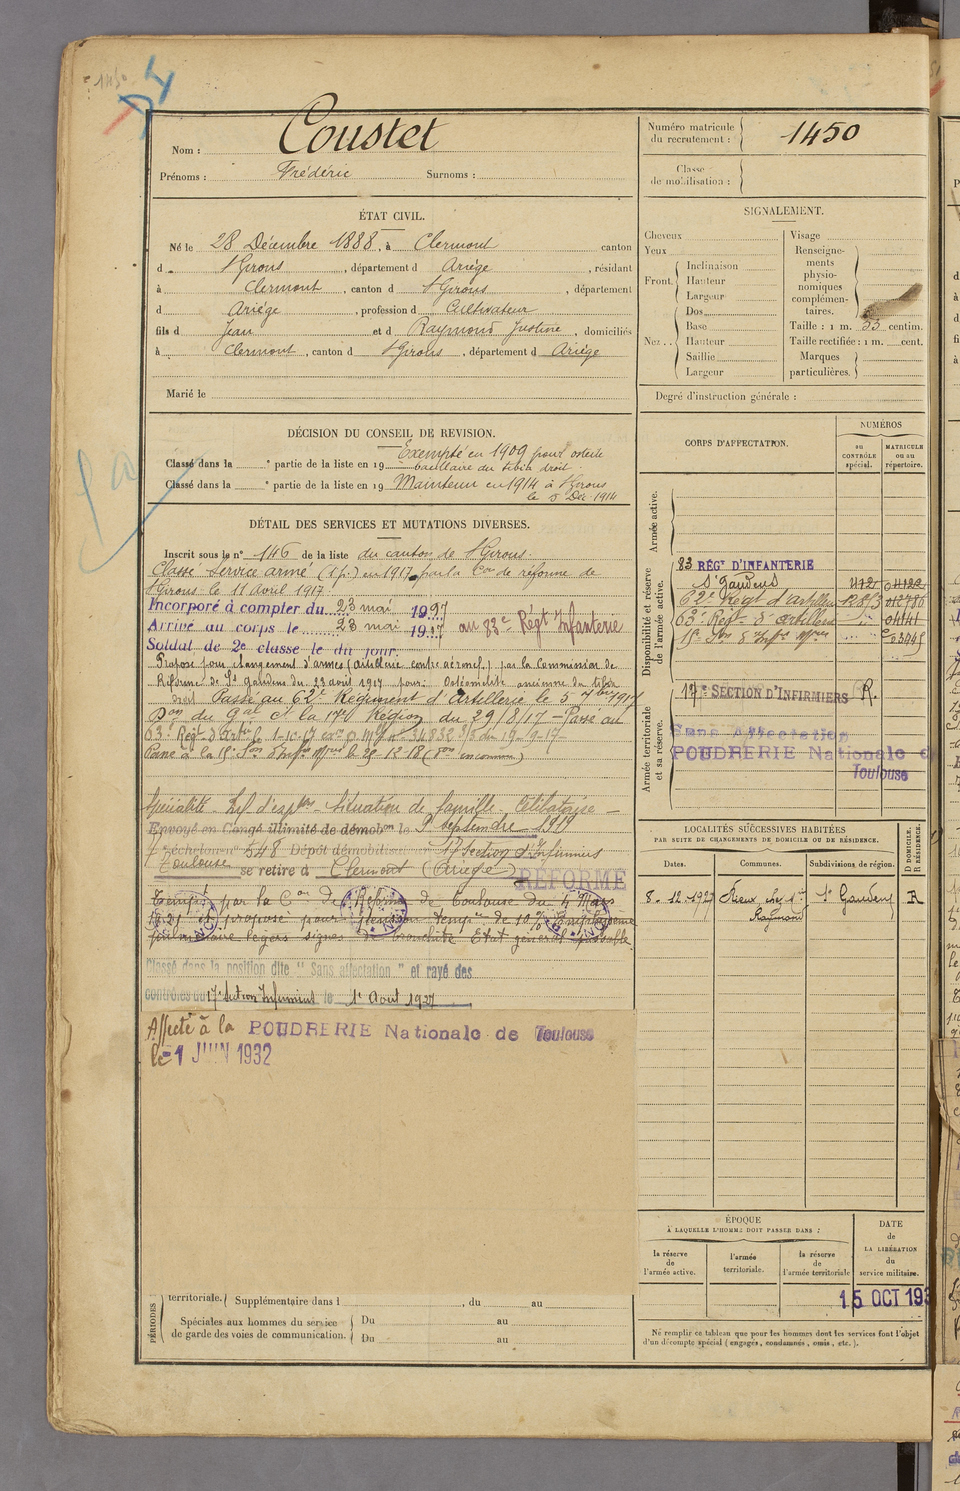 Nom : Coustet
Prénoms : Frédéric Surnoms :
Numéro matricule du recrutement : 1450
Classe de mobilisation :
ÉTAT CIVIL.
Né le 28 Décembre 1888, à Clermont canton
d St Girons, département d Ariège, résidant
à Clermont, canton d St Girons, département
d Ariège, profession d Cultivateur
fils d Jean et d Raymond Justine, domiciliés
à Clermont, canton d St Girons, département d Ariège
Marié le
SIGNALEMENT.
Cheveux
Yeux
Front. Inclinaison
Hauteur
Largeur
Nez.. Dos
Base
Hauteur
Saillie
Largeur
Visage
Renseignements physionomiques complémentaires.
Taille : 1 m. 53 centim.
Taille rectifiée : 1 m. cent.
Marques particulières.
Degré d'instruction générale :
DÉCISION DU CONSEIL DE REVISION.
Exempté en 1909 pour ostéite
Classé dans la e partie de la liste en 19 bacillaire du tibia droit.
Classé dans la e partie de la liste en 19 Maintenu en 1914 à St Girons
le 5 Déc 1914
DÉTAIL DES SERVICES ET MUTATIONS DIVERSES.
Inscrit sous le n° 146 de la liste du canton de St Girons.
Classé service armé (1 p.) en 1917 par la Con de réforme de
St Girons le 11 avril 1917.
Incorporé à compter du 23 mai 1917
Arrivé au corps le 23 mai 1917 au 83e Régt Infanterie
Soldat de 2e classe le du jour.
Proposé pour changement d'arme (artillerie contre aéronef.) par la Commission de
Réforme de St Gaudens du 23 avril 1917 pour: Ostéomélite ancienne du tibia
droit. Passé au 62e Régiment d'Artillerie le 5 7bre 1917
Don du Gal Ct la 17e Région du 29/8/17 - Passé au
63e Régt d'Artie le 1-10-17 34832 du 19-9-17-
Passé à la 15e Son d'Infrs Mres le 29-12-18
Spécialité. Situation de famille. Célibataire -
Envoyé en Congé illimité de démobon le 3 septembre 1919
échelon n° 548 Dépôt démobilisateur 17 Section d'Infirmiers
Toulouse se retire à Clermont (Ariège)
RÉFORMÉ
Temp. par la Con de Réforme de Toulouse du 4 Mars
1921 et proposé pour pension tempre de 10 % Emphysème
pulmonaire légers signes de bronchite. Etat général passable.
Classé dans la position dite "Sans affectation" et rayé des
contrôles du 17e Section Infirmiers le 1er Aout 1927
Affecté à la POUDRERIE Nationale de Toulouse
le -1 JUIN 1932
PÉRIODES
territoriale. Supplémentaire dans l , du au
Spéciales aux hommes du service de garde des voies de communication. Du au
Du au
CORPS D'AFFECTATION.
NUMÉROS
au CONTRÔLE spécial.
MATRICULE ou au répertoire.
Armée active.
Disponibilité et réserve de l'armée active.
83 RÉGT D'INFANTERIE
St Gaudens
62e Régt d'artillerie
63e Régt d'artillerie
15e Son d'Infrs Mres
Armée territoriale et sa réserve.
17e SECTION D'INFIRMIERS R.
Sans Affectation
POUDRERIE Nationale de
Toulouse
LOCALITÉS SUCCESSIVES HABITÉES
PAR SUITE DE CHANGEMENTS DE DOMICILE OU DE RÉSIDENCE.
Dates. Communes. Subdivisions de région. D DOMICILE. R RÉSIDENCE.
8.12.1927 Rieux chez Mr Raymond St Gaudens R
ÉPOQUE
À LAQUELLE L'HOMME DOIT PASSER DANS :
la réserve de l'armée active.
l'armée territoriale.
la réserve de l'armée territoriale
DATE de LA LIBÉRATION du service militaire.
15 OCT 193
Ne remplir ce tableau que pour les hommes dont les services font l'objet
d'un décompte spécial (engagés, condamnés, omis, etc.).